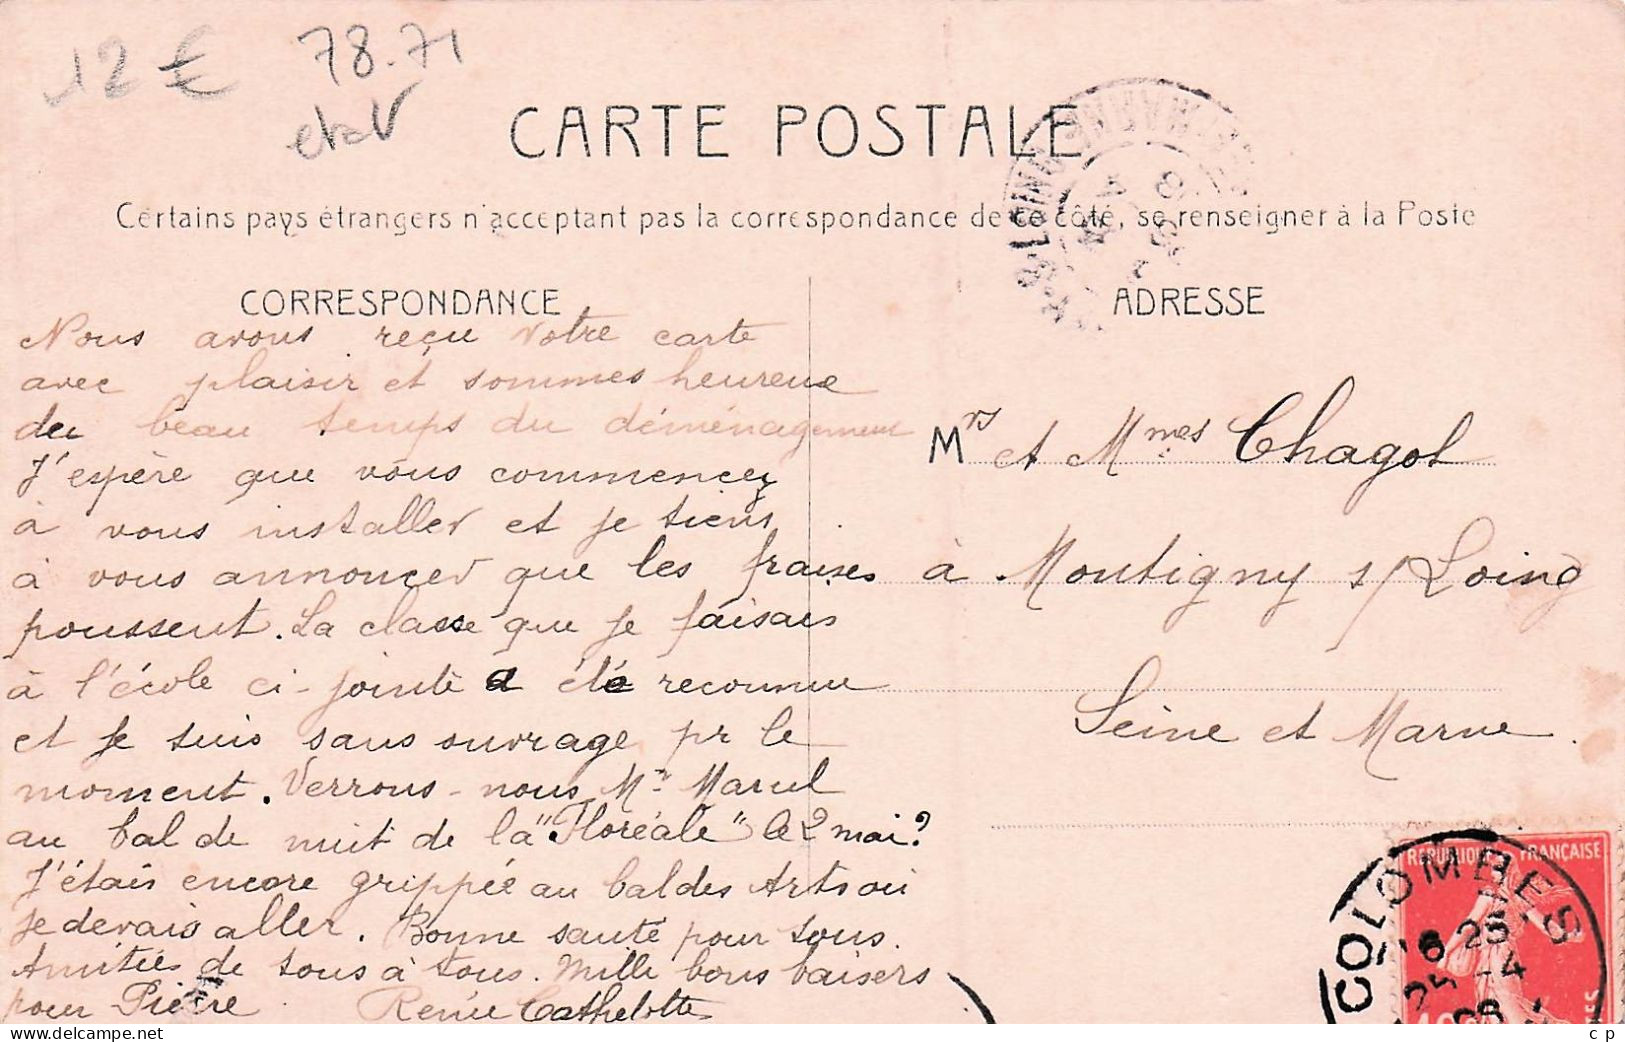 12 €
78.71
etat
CARTE POSTALE
Certains pays étrangers n'acceptant pas la correspondance de ce côté, se renseigner à la Poste
CORRESPONDANCE
Nous avons reçu votre carte
avec plaisir et sommes heureux
du beau temps du déménagement
J'espère que vous commencez
à vous installer et je tiens
à vous annoncer que les fraises
poussent. La classe que je faisais
à l'école ci-jointe a été reconnue
et je suis sans ouvrage pr le
moment. Verrons-nous Mr Marcel
au bal de nuit de la "Floréale" le 2 mai?
J'étais encore grippée au bal des Arts où
je devais aller. Bonne santé pour tous.
Amitiés de tous à tous. Mille bons baisers
pour Pierre Renée Cathelotte
ADRESSE
Mrs et Mmes Chagot
à Montigny s/ Loing
Seine et Marne.
REPUBLIQUE FRANÇAISE
COLOMBES
25 -4
cp